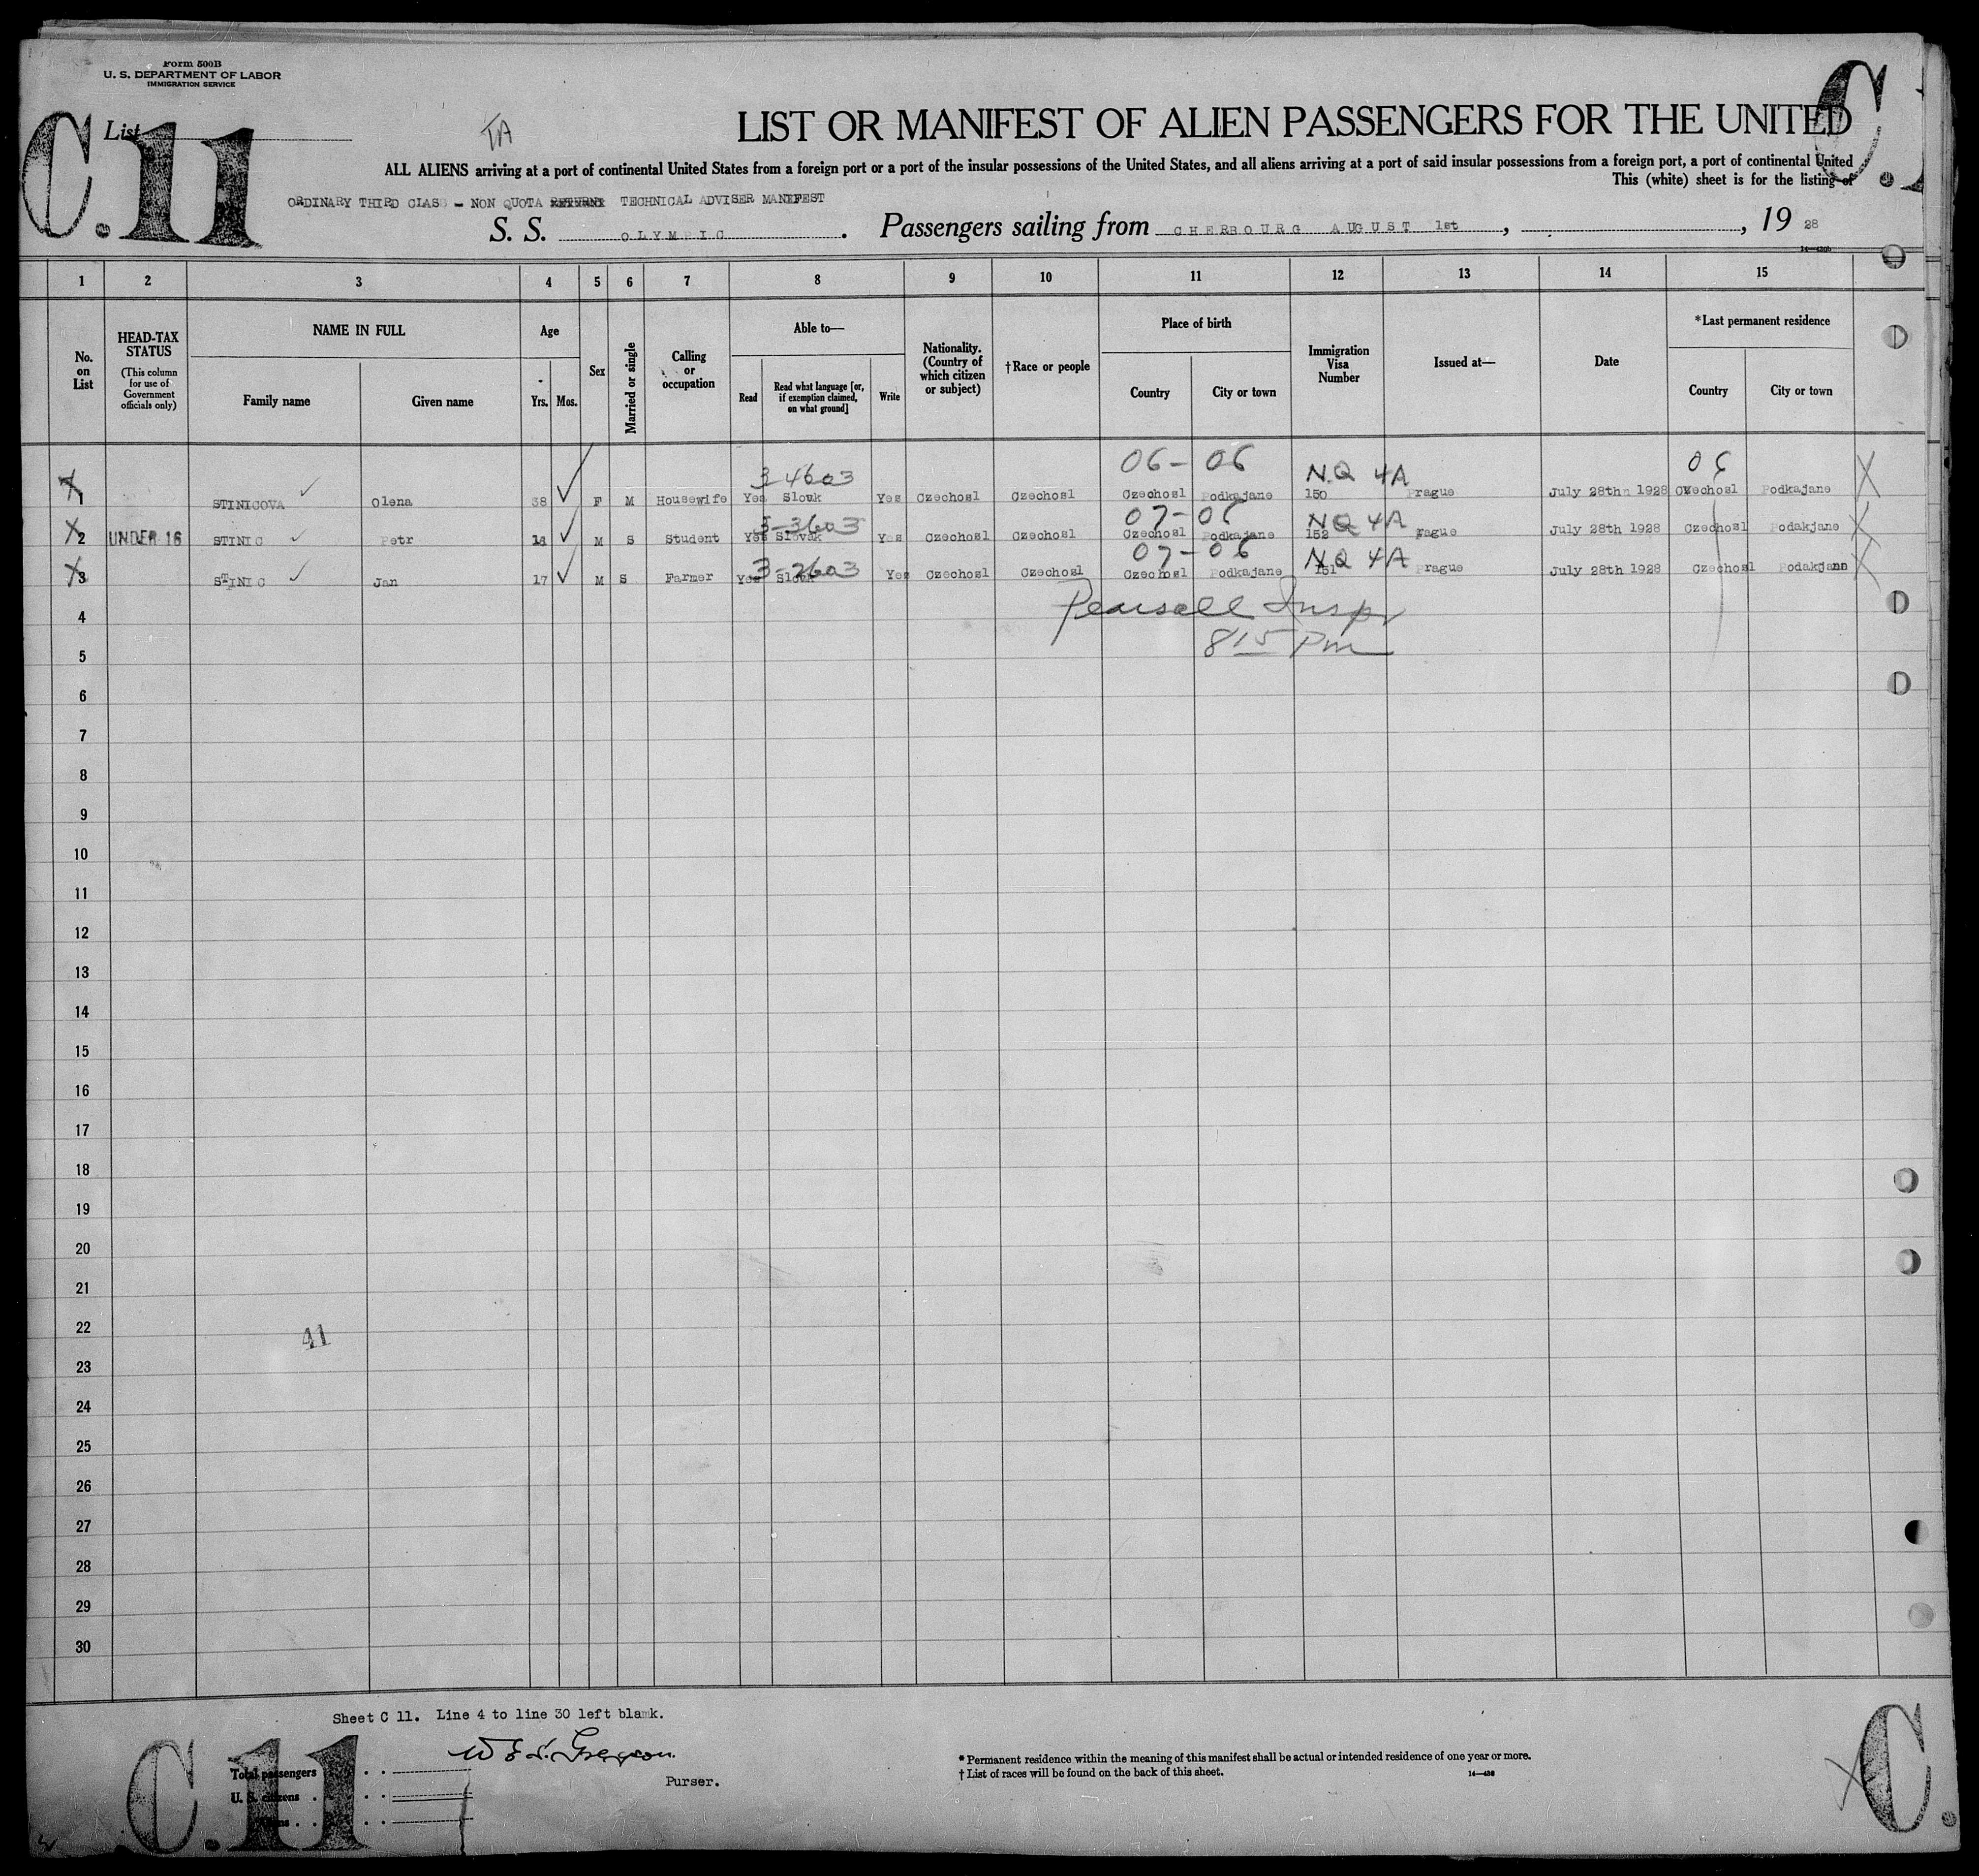 Form 500B
U. S. DEPARTMENT OF LABOR
IMMIGRATION SERVICE
C. 11
List
TA
LIST OR MANIFEST OF ALIEN PASSENGERS FOR THE UNITED
C.
ALL ALIENS arriving at a port of continental United States from a foreign port or a port of the insular possessions of the United States, and all aliens arriving at a port of said insular possessions from a foreign port, a port of continental United
This (white) sheet is for the listing of
ORDINARY THIRD CLASS - NON QUOTA TECHNICAL ADVISER MANIFEST
S. S. OLYMPIC. Passengers sailing from CHERBOURG AUGUST 1st, , 19 28
1 2 3 4 5 6 7 8 9 10 11 12 13 14 15
No. on List
HEAD-TAX STATUS
(This column for use of Government officials only)
NAME IN FULL
Family name Given name
Age
Yrs. Mos.
Sex
Married or single
Calling or occupation
Able to—
Read Read what language [or, if exemption claimed, on what ground] Write
Nationality. (Country of which citizen or subject)
†Race or people
Place of birth
Country City or town
Immigration Visa Number
Issued at—
Date
*Last permanent residence
Country City or town
3-4603 06- 06 NQ 4A 06
X 1 STINICOVA Olena 38 F M Housewife Yes Slovk Yes Czechosl Czechosl Czechosl Podkajane 150 Prague July 28th 1928 Czechosl Podkajane X
3-3603 07- 06 NQ 4A
X 2 UNDER 16 STINIC Petr M S Student Yes Slovak Yes Czechosl Czechosl Czechosl Podkajane 152 Prague July 28th 1928 Czechosl Podakjane X
3-2603 07- 06 NQ 4A
X 3 STINIC Jan 17 M S Farmer Yes Slovk Yes Czechosl Czechosl Czechosl Podkajane 151 Prague July 28th 1928 Czechosl Podakjann X
4 Pearsall Inspr
5 8 15 Pm
6
7
8
9
10
11
12
13
14
15
16
17
18
19
20
21
22 41
23
24
25
26
27
28
29
30
Sheet C 11. Line 4 to line 30 left blank.
Purser.
C. 11
Total passengers
U. S. citizens
* Permanent residence within the meaning of this manifest shall be actual or intended residence of one year or more.
† List of races will be found on the back of this sheet.
X C.